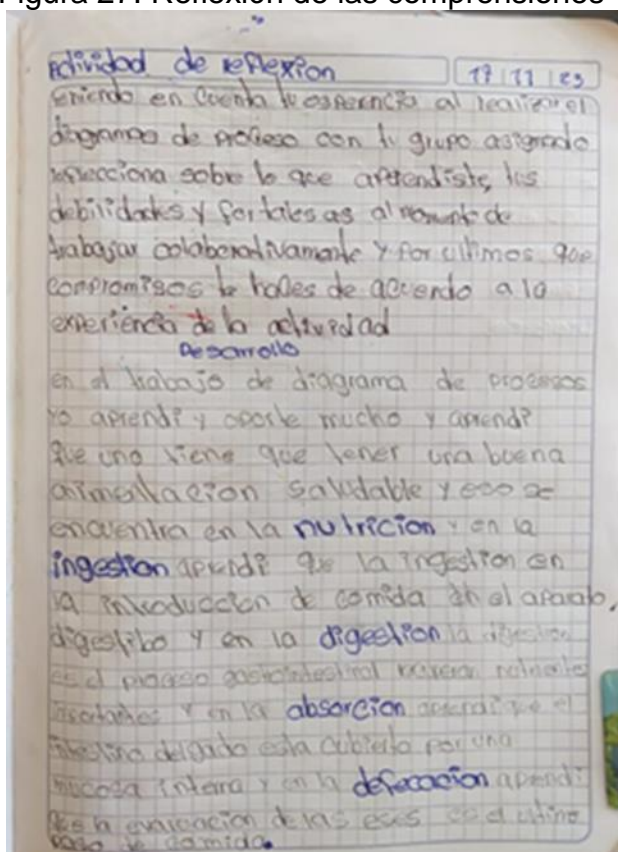 Figura 27. Reflexión de las comprensiones
Actividad de reflexion 17 11 23
teniendo en cuenta tu esperencia al realizar el
diagrama de proceso con tu grupo asignado
sobre lo que aprendiste, los
debilidades y fortalesas al momento de
trabajar colaborativamente y por ultimos que
compromisos te haces de acuerdo a la
experiencia de la actividad
Desarrollo
en el trabajo de diagrama de procesos
yo aprendi y aporte mucho y aprendi
que uno tiene que tener una buena
alimentacion saludable y eso se
encuentra en la nutricion y en la
ingestion aprendi que la ingestion en
la introduccion de comida en el aparato
digestibo y en la digestion la digestion
es el proceso gastrointestinal
y en la absorcion aprendi que el
intestino delgado esta cubierto por una
mucosa interna y en la defecacion aprendi
que la de las eses es el ultimo
paso de comida.